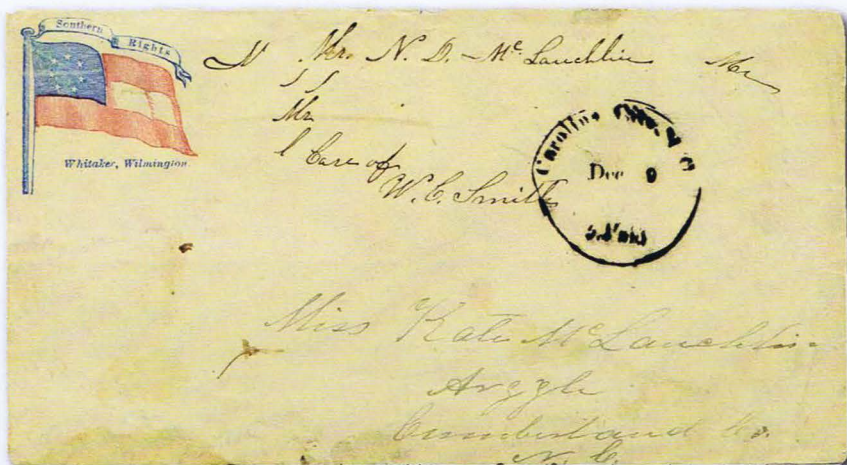 Southern Rights
Whitaker, Wilmington.
Mrs. N. D. McLauchlin
Mr
Care of
W. C. Smith
Carolina City, N C
Dec 9
5 Paid
Miss Kate McLauchlin
Argyle
Cumberland Co.
N. C.